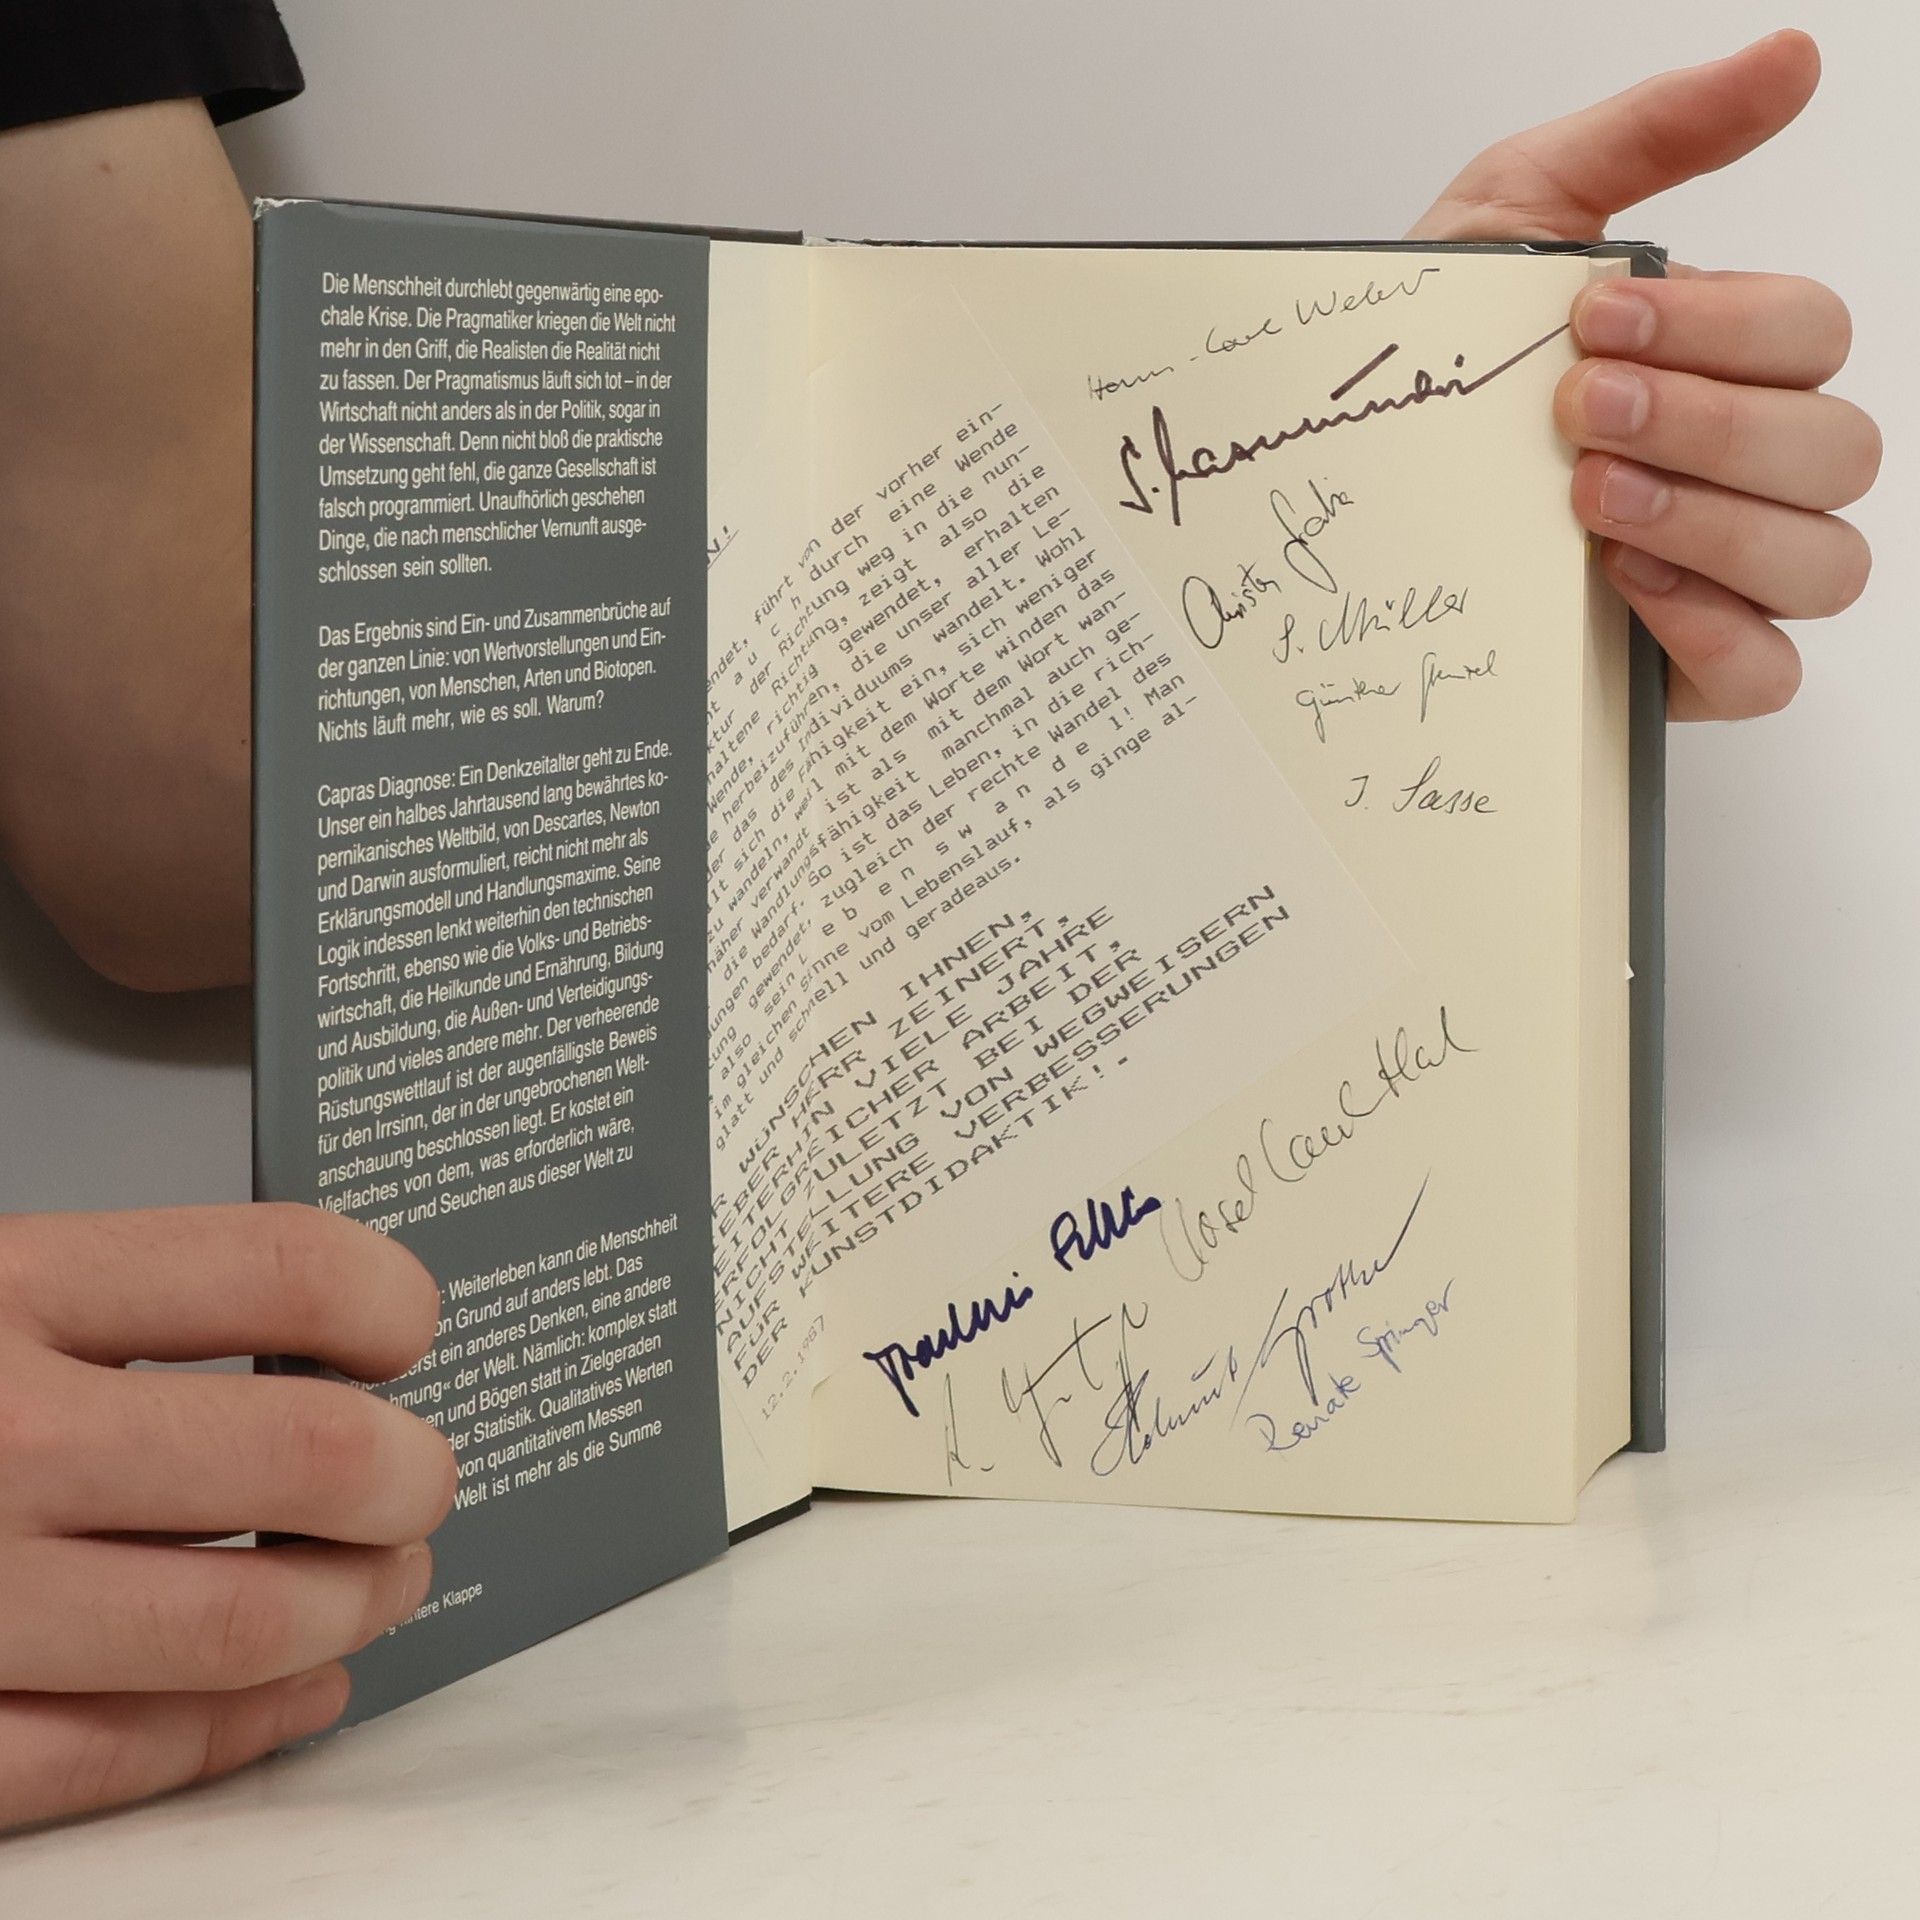 Die Menschheit durchlebt gegenwärtig eine epo-
chale Krise. Die Pragmatiker kriegen die Welt nicht
mehr in den Griff, die Realisten die Realität nicht
zu fassen. Der Pragmatismus läuft sich tot – in der
Wirtschaft nicht anders als in der Politik, sogar in
der Wissenschaft. Denn nicht bloß die praktische
Umsetzung geht fehl, die ganze Gesellschaft ist
falsch programmiert. Unaufhörlich geschehen
Dinge, die nach menschlicher Vernunft ausge-
schlossen sein sollten.
Das Ergebnis sind Ein- und Zusammenbrüche auf
der ganzen Linie: von Wertvorstellungen und Ein-
richtungen, von Menschen, Arten und Biotopen.
Nichts läuft mehr, wie es soll. Warum?
Capras Diagnose: Ein Denkzeitalter geht zu Ende.
Unser ein halbes Jahrtausend lang bewährtes ko-
pernikanisches Weltbild, von Descartes, Newton
und Darwin ausformuliert, reicht nicht mehr als
Erklärungsmodell und Handlungsmaxime. Seine
Logik indessen lenkt weiterhin den technischen
Fortschritt, ebenso wie die Volks- und Betriebs-
wirtschaft, die Heilkunde und Ernährung, Bildung
und Ausbildung, die Außen- und Verteidigungs-
politik und vieles andere mehr. Der verheerende
Rüstungswettlauf ist der augenfälligste Beweis
für den Irrsinn, der in der ungebrochenen Welt-
anschauung beschlossen liegt. Er kostet ein
Vielfaches von dem, was erforderlich wäre,
und Seuchen aus dieser Welt zu
: Weiterleben kann die Menschheit
Grund auf anders lebt. Das
ein anderes Denken, eine andere
der Welt. Nämlich: komplex statt
und Bögen statt in Zielgeraden
der Statistik. Qualitatives Werten
von quantitativem Messen
Welt ist mehr als die Summe
Klappe
führt von der vorher ein-
a u c h durch eine Wende
der Richtung weg in die nun-
Richtung, zeigt also die
Wende, richtig gewendet, erhalten
herbeizuführen, die unser aller Le-
das des Individuums wandelt. Wohl
sich die Fähigkeit ein, sich weniger
zu wandeln, weil mit dem Worte winden das
näher verwandt ist als mit dem Wort wan-
die Wandlungsfähigkeit manchmal auch ge-
bedarf. So ist das Leben, in die rich-
gewendet, zugleich der rechte Wandel des
also sein L e b e n s w a n d e l ! Man
im gleichen Sinne vom Lebenslauf, als ginge al-
glatt und schnell und geradeaus.
WÜNSCHEN IHNEN,
HERR ZEINERT,
IN VIELE JAHRE
ERFOLGREICHER ARBEIT,
NICHT ZULETZT BEI DER
AUFSTELLUNG VON WEGWEISERN
FÜR WEITERE VERBESSERUNGEN
DER KUNSTDIDAKTIK!.-
12.2.1987
Weber
S. Müller
Günther
J. Sasse
Helmut Grothe
Renate Springer